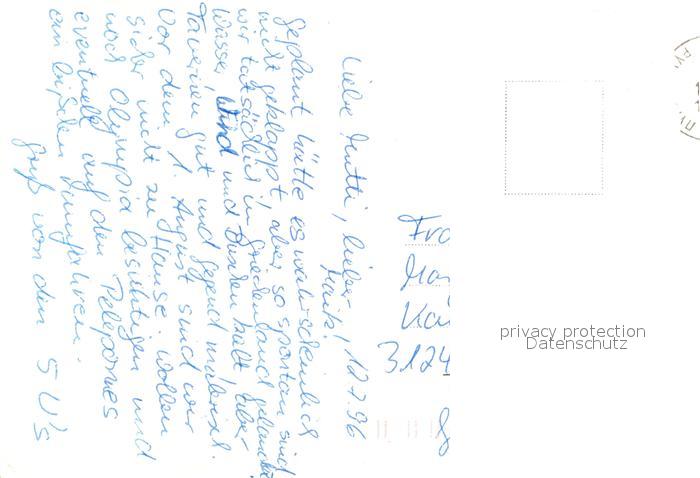 Liebe Mutti, lieber
Maik! 12.7.96
Geplant hätte es wahrscheinlich
nicht geklappt, aber so spontan sind
wir tatsächlich in Griechenland gelandet.
Wasser, Wind und
Tavernen gut und Gegend malerisch.
Vor dem 1. August sind wir
sicher nicht zu Hause. Wollen
noch Olympia besichtigen und
eventuell auf dem Peleponnes
ein bißchen rumfahren.
Gruß von den 5 U's
Fra
Kai
3124
privacy protection
Datenschutz